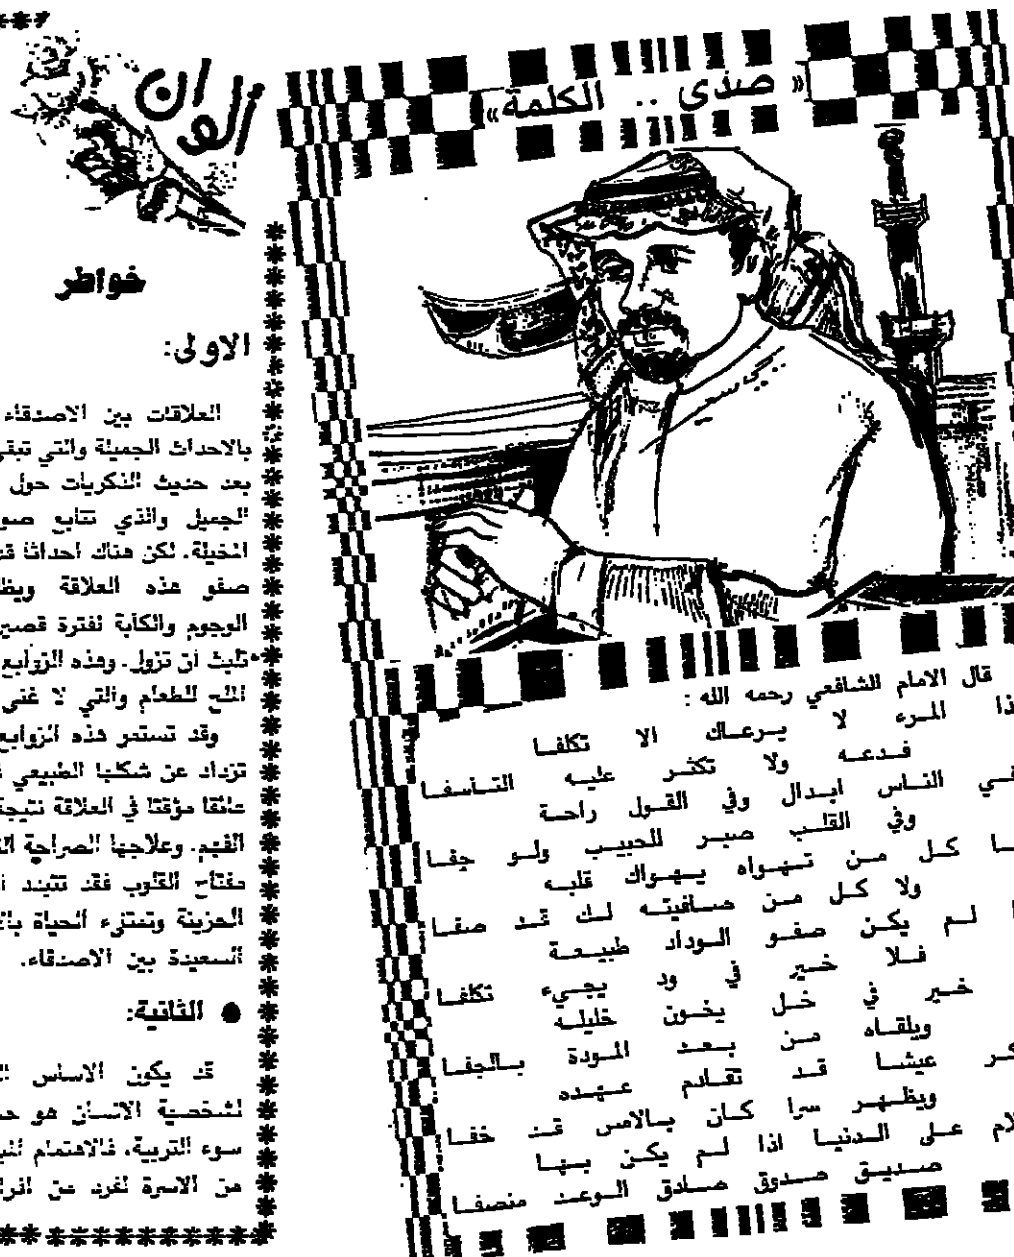 « صدى .. الكلمة »
قال الامام الشافعي رحمه الله :
المرء لا يرعاك الا تكلفا
فدعه ولا تكثر عليه التأسفا
الناس ابدال وفي القول راحة
وفي القلب صبر للحبيب ولو جفا
كل من تهواه يهواك قلبه
ولا كل من صافيته لك قد صفا
لم يكن صفو الوداد طبيعة
فلا خير في ود يجيء تكلفا
خير في خل يخون خليله
ويلقاه من بعد المودة بالجفا
عيشا قد تقادم عهده
ويظهر سرا كان بالامس قد خفا
على الدنيا اذا لم يكن بها
صديق صدوق صادق الوعد منصفا
ألوان
خواطر
الاولى:
العلاقات بين الاصدقاء
بالاحداث الجميلة والتي
بعد حديث الذكريات حول
الجميل والذي تتابع
المخيلة. لكن هناك احداثا
صفو هذه العلاقة
الوجوم والكآبة لفترة
تلبث ان تزول. وهذه الزوابع
الملح للطعام والتي لا غنى
وقد تستمر هذه الزوابع
تزداد عن شكلها الطبيعي
عائقا مؤقتا في العلاقة نتيجة
الفهم. وعلاجها الصراحة
مفتاح القلوب فقد تتبدد
الحزينة وتمتلىء الحياة
السعيدة بين الاصدقاء.
● الثانية:
قد يكون الاساس
لشخصية الانسان هو
سوء التربية. فالاهتمام
من الاسرة لفرد من